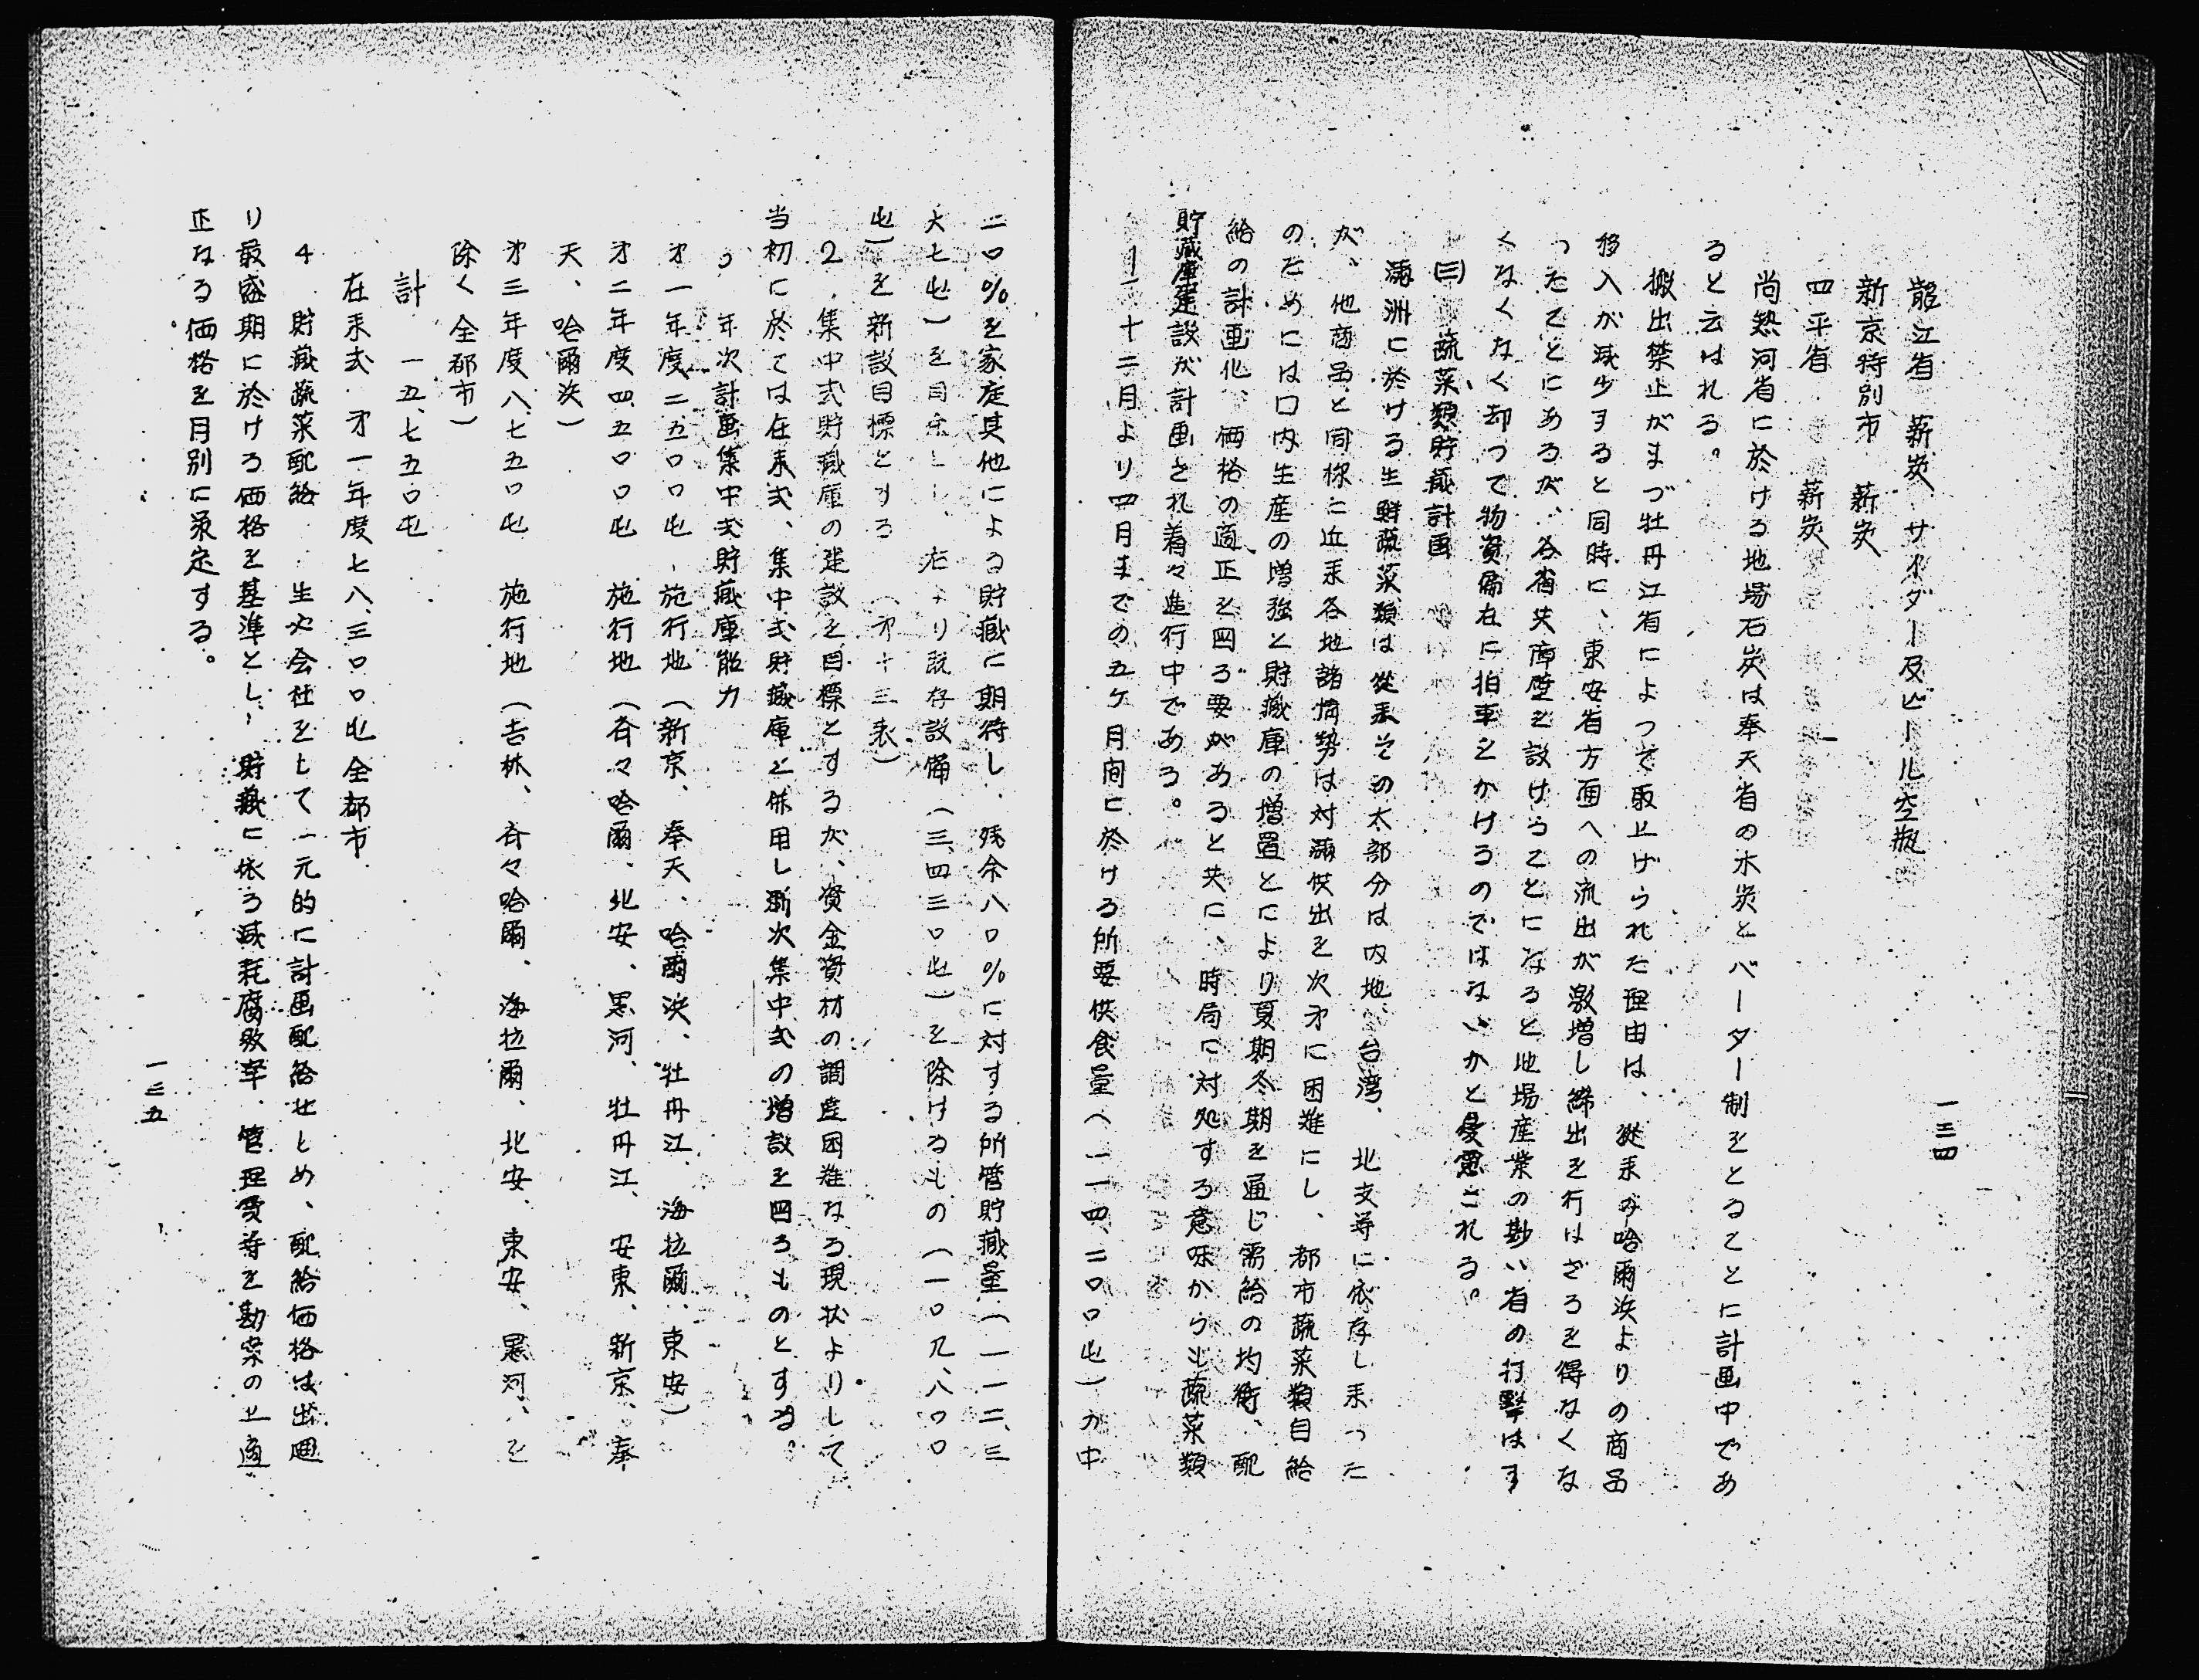 一三四
龍江省 薪炭、サイダー及ビール空瓶
新京特別市 薪炭
四平省 薪炭
尚熱河省に於ける地場石炭は奉天省の木炭とバーター制をとることに計画中であ
ると云はれる。
搬出禁止がまづ牡丹江省によつて取上げられた理由は、従来の哈爾浜よりの商品
移入が減少すると同時に、東安省方面への流出が激増し締出を行はざるを得なくな
つたことにあるが、各省夫々障壁を設けることになると地場産業の尠い省の打撃はす
くなくなく却つて物資偏在に拍車をかけるのではないかと憂慮される。
(三) 蔬菜類貯蔵計画
満洲に於ける生鮮蔬菜類は従来その大部分は内地、台湾、北支等に依存し来つた
が、他商品と同様に近来各地諸情勢は対満供出を次才に困難にし、都市蔬菜類自給
のためには口内生産の増強と貯蔵庫の増置とにより夏期冬期を通じ需給の均衡、配
給の計画化、価格の適正を図る要があると共に、時局に対処する意味からも蔬菜類
貯蔵庫建設が計画され着々進行中である。
1 十二月より四月までの五ケ月間に於ける所要供食量(一一四、二〇〇屯)カ中
二〇%を家庭其他による貯蔵に期待し、残余八〇%に対する所管貯蔵量(一一二、三
六七屯)を目 とし、右より既存設備(三、四三〇屯)を除けるもの(一〇九、八〇〇
屯)を新設目標とする (才十三表)
2 集中式貯蔵庫の建設を目標とするが、資金資材の調達困難なる現状よりして
当初に於ては在来式、集中式貯蔵庫を併用し漸次集中式の増設を図るものとする。
3 年次計画集中式貯蔵庫能力
才一年度 二、五〇〇屯 施行地(新京、奉天、哈爾浜、牡丹江、海拉爾、東安)
才二年度 四、五〇〇屯 施行地(斉々哈爾、北安、黒河、牡丹江、安東、新京、奉
天、哈爾浜)
才三年度 八、七五〇屯 施行地(吉林、斉々哈爾、海拉爾、北安、東安、黒河、を
除く全都市)
計 一五、七五〇屯
在来式 才一年度七八、三〇〇屯全都市
4 貯蔵蔬菜配給 生必会社をして一元的に計画配給せしめ、配給価格は出廻
り最盛期に於ける価格を基準とし、貯蔵に依る減耗腐敗率、管理費等を勘案の上適
正なる価格を月別に決定する。
一三五